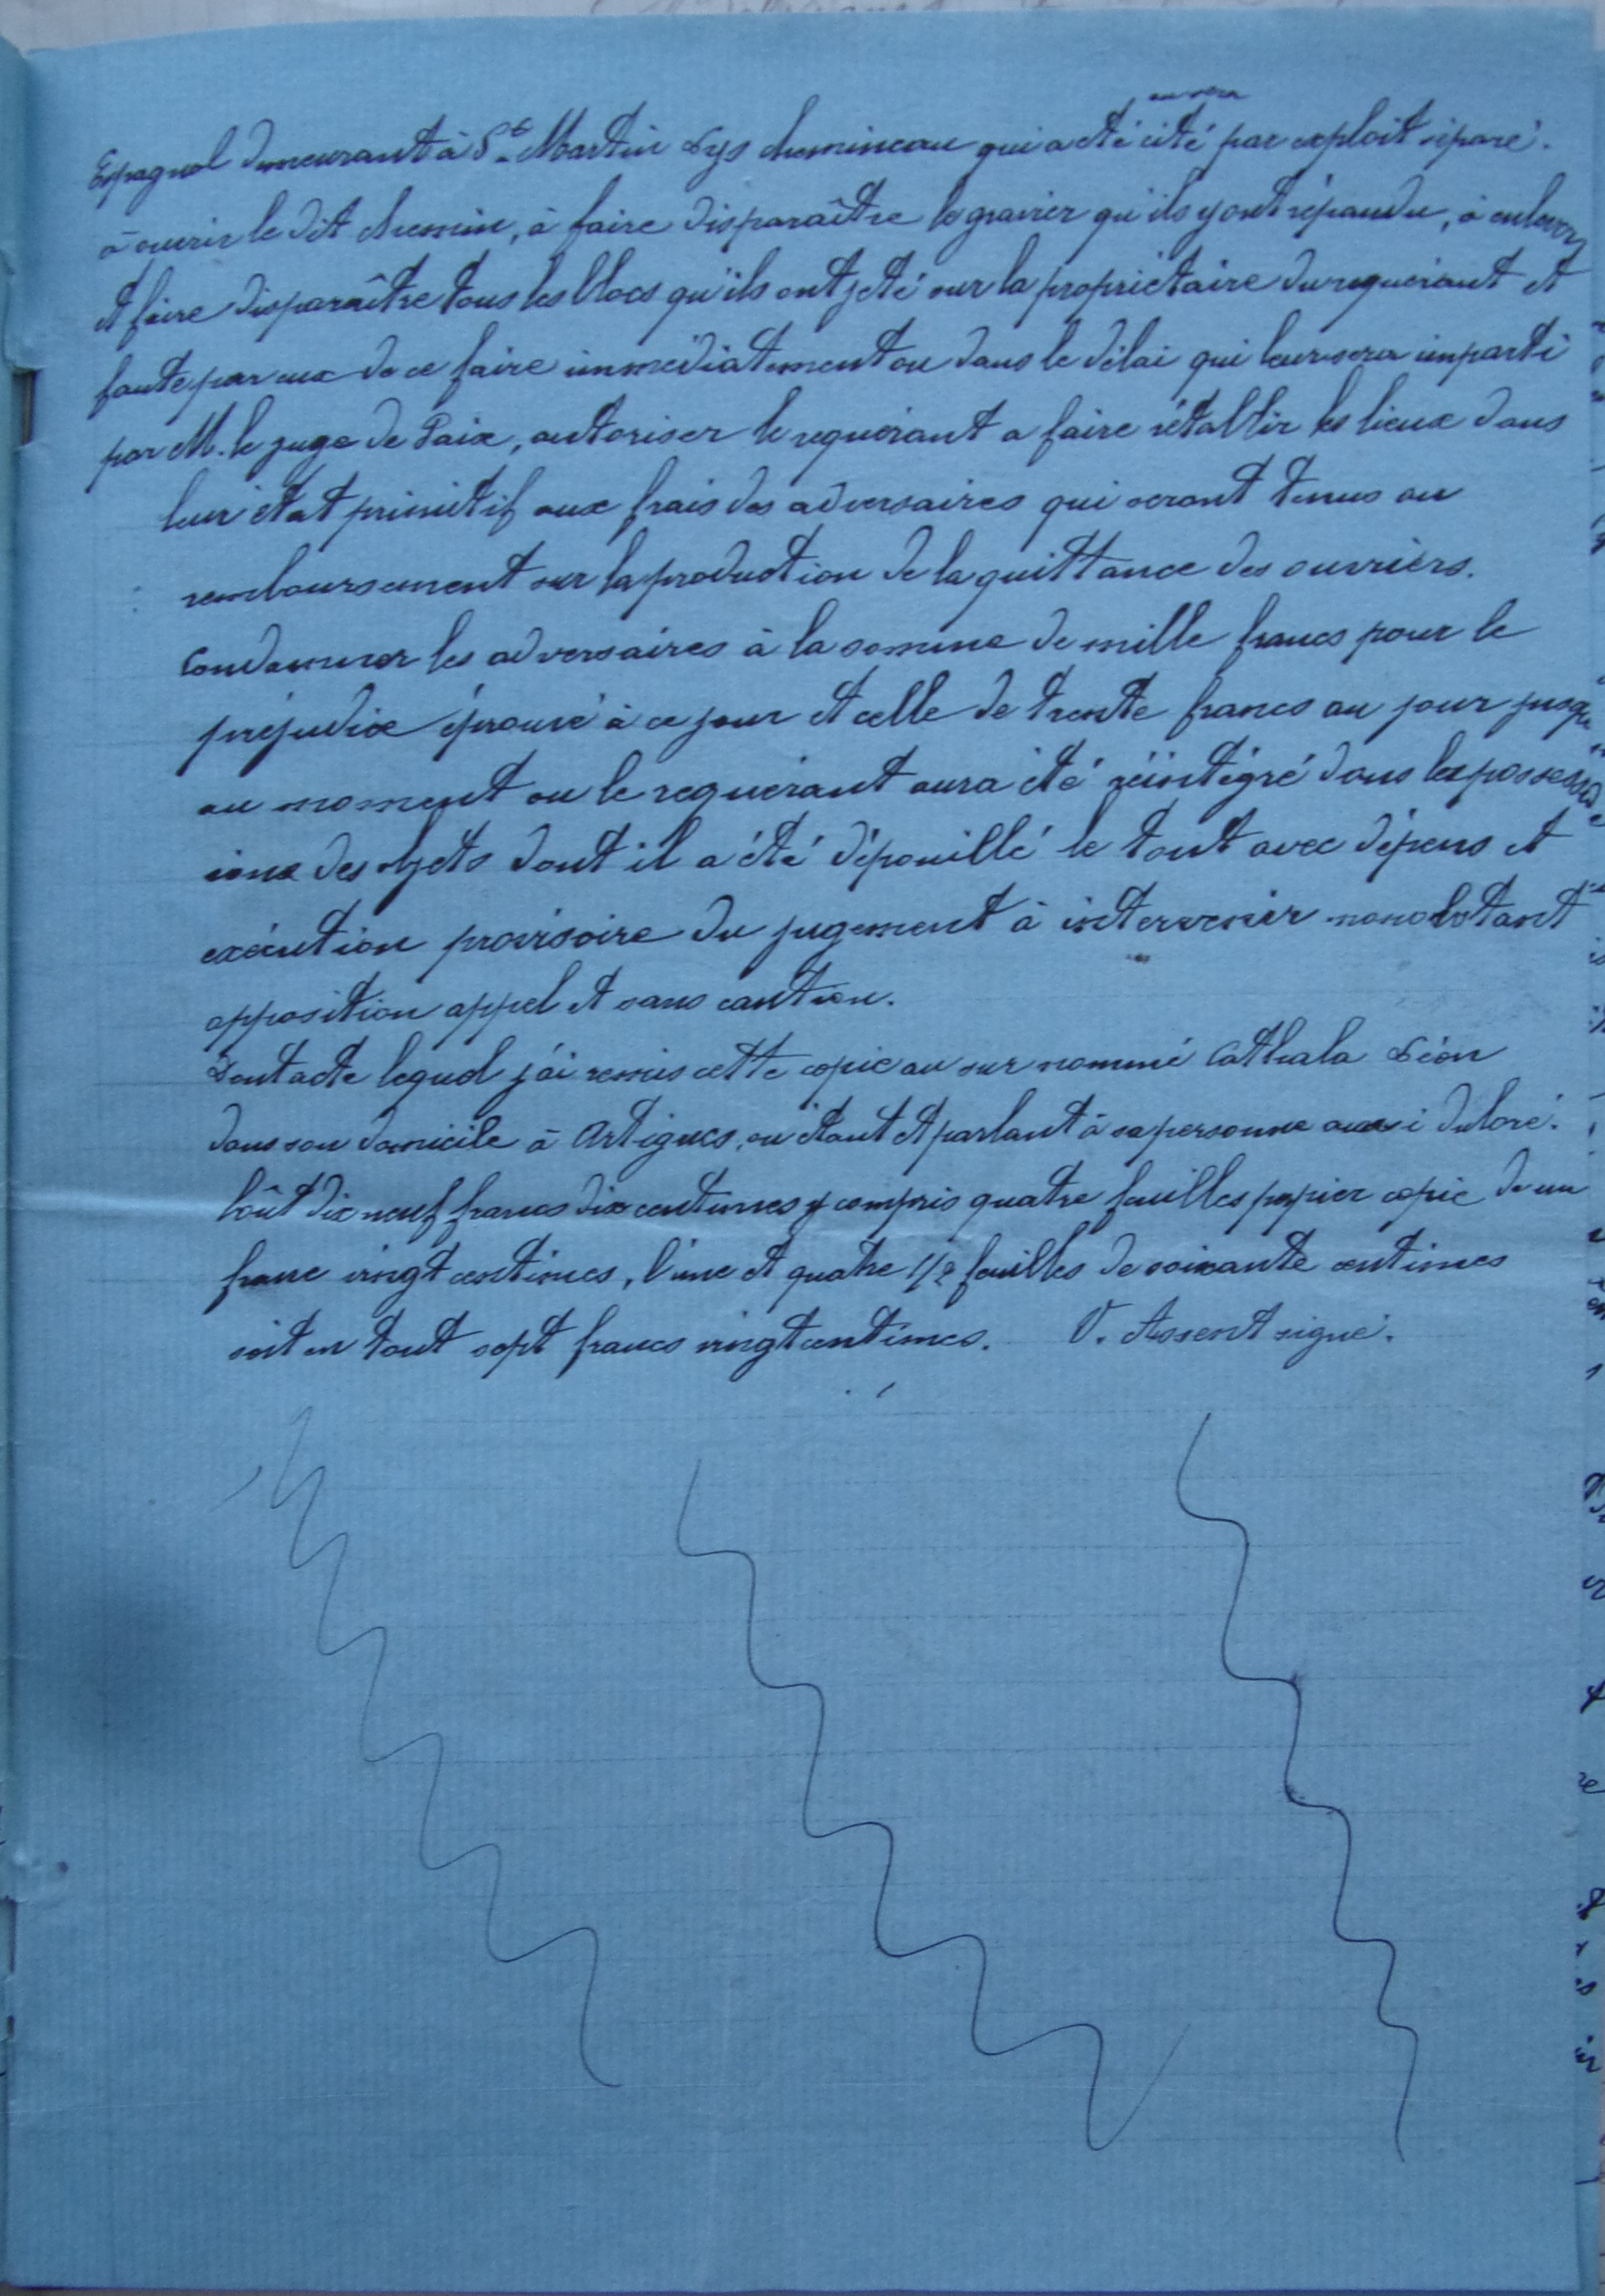 ou sera
Espagnol demeurant à St Martin Lys chemineau qui a été cité par exploit séparé.
à ouvrir le dit chemin, à faire disparaître le gravier qu'ils y ont répandu, à enlever
et faire disparaître tous les blocs qu'ils ont jeté sur la proprietaire du requérant et
faute par eux de ce faire immédiatement ou dans le délai qui leur sera imparti
par M. le juge de Paix, autoriser le requérant a faire rétablir les lieux dans
leur état primitif aux frais des adversaires qui seront tenus au
remboursement sur la production de la quittance des ouvriers.
Condamner les adversaires à la somme de mille francs pour le
préjudice éprouvé à ce jour et celle de trente francs au jour jusqu
au moment ou le requérant aura été réintégré dans les possess
ions des objets dont il a été dépouillé le tout avec dépens et
exécution provisoire du jugement à intervenir nonobstant
opposition appel et sans caution.
Dont acte lequel j'ai remis cette copie au sur nommé Cathala Léon
dans son domicile à Artigues, ou étant et parlant à sa personne aussi déclaré.
Coût dix neuf francs dix centimes y compris quatre feuilles papier copie de un
franc vingt centimes, l'une et quatre 1/2 feuilles de soixante centimes
soit en tout sept francs vingt centimes. V. Assent signé.